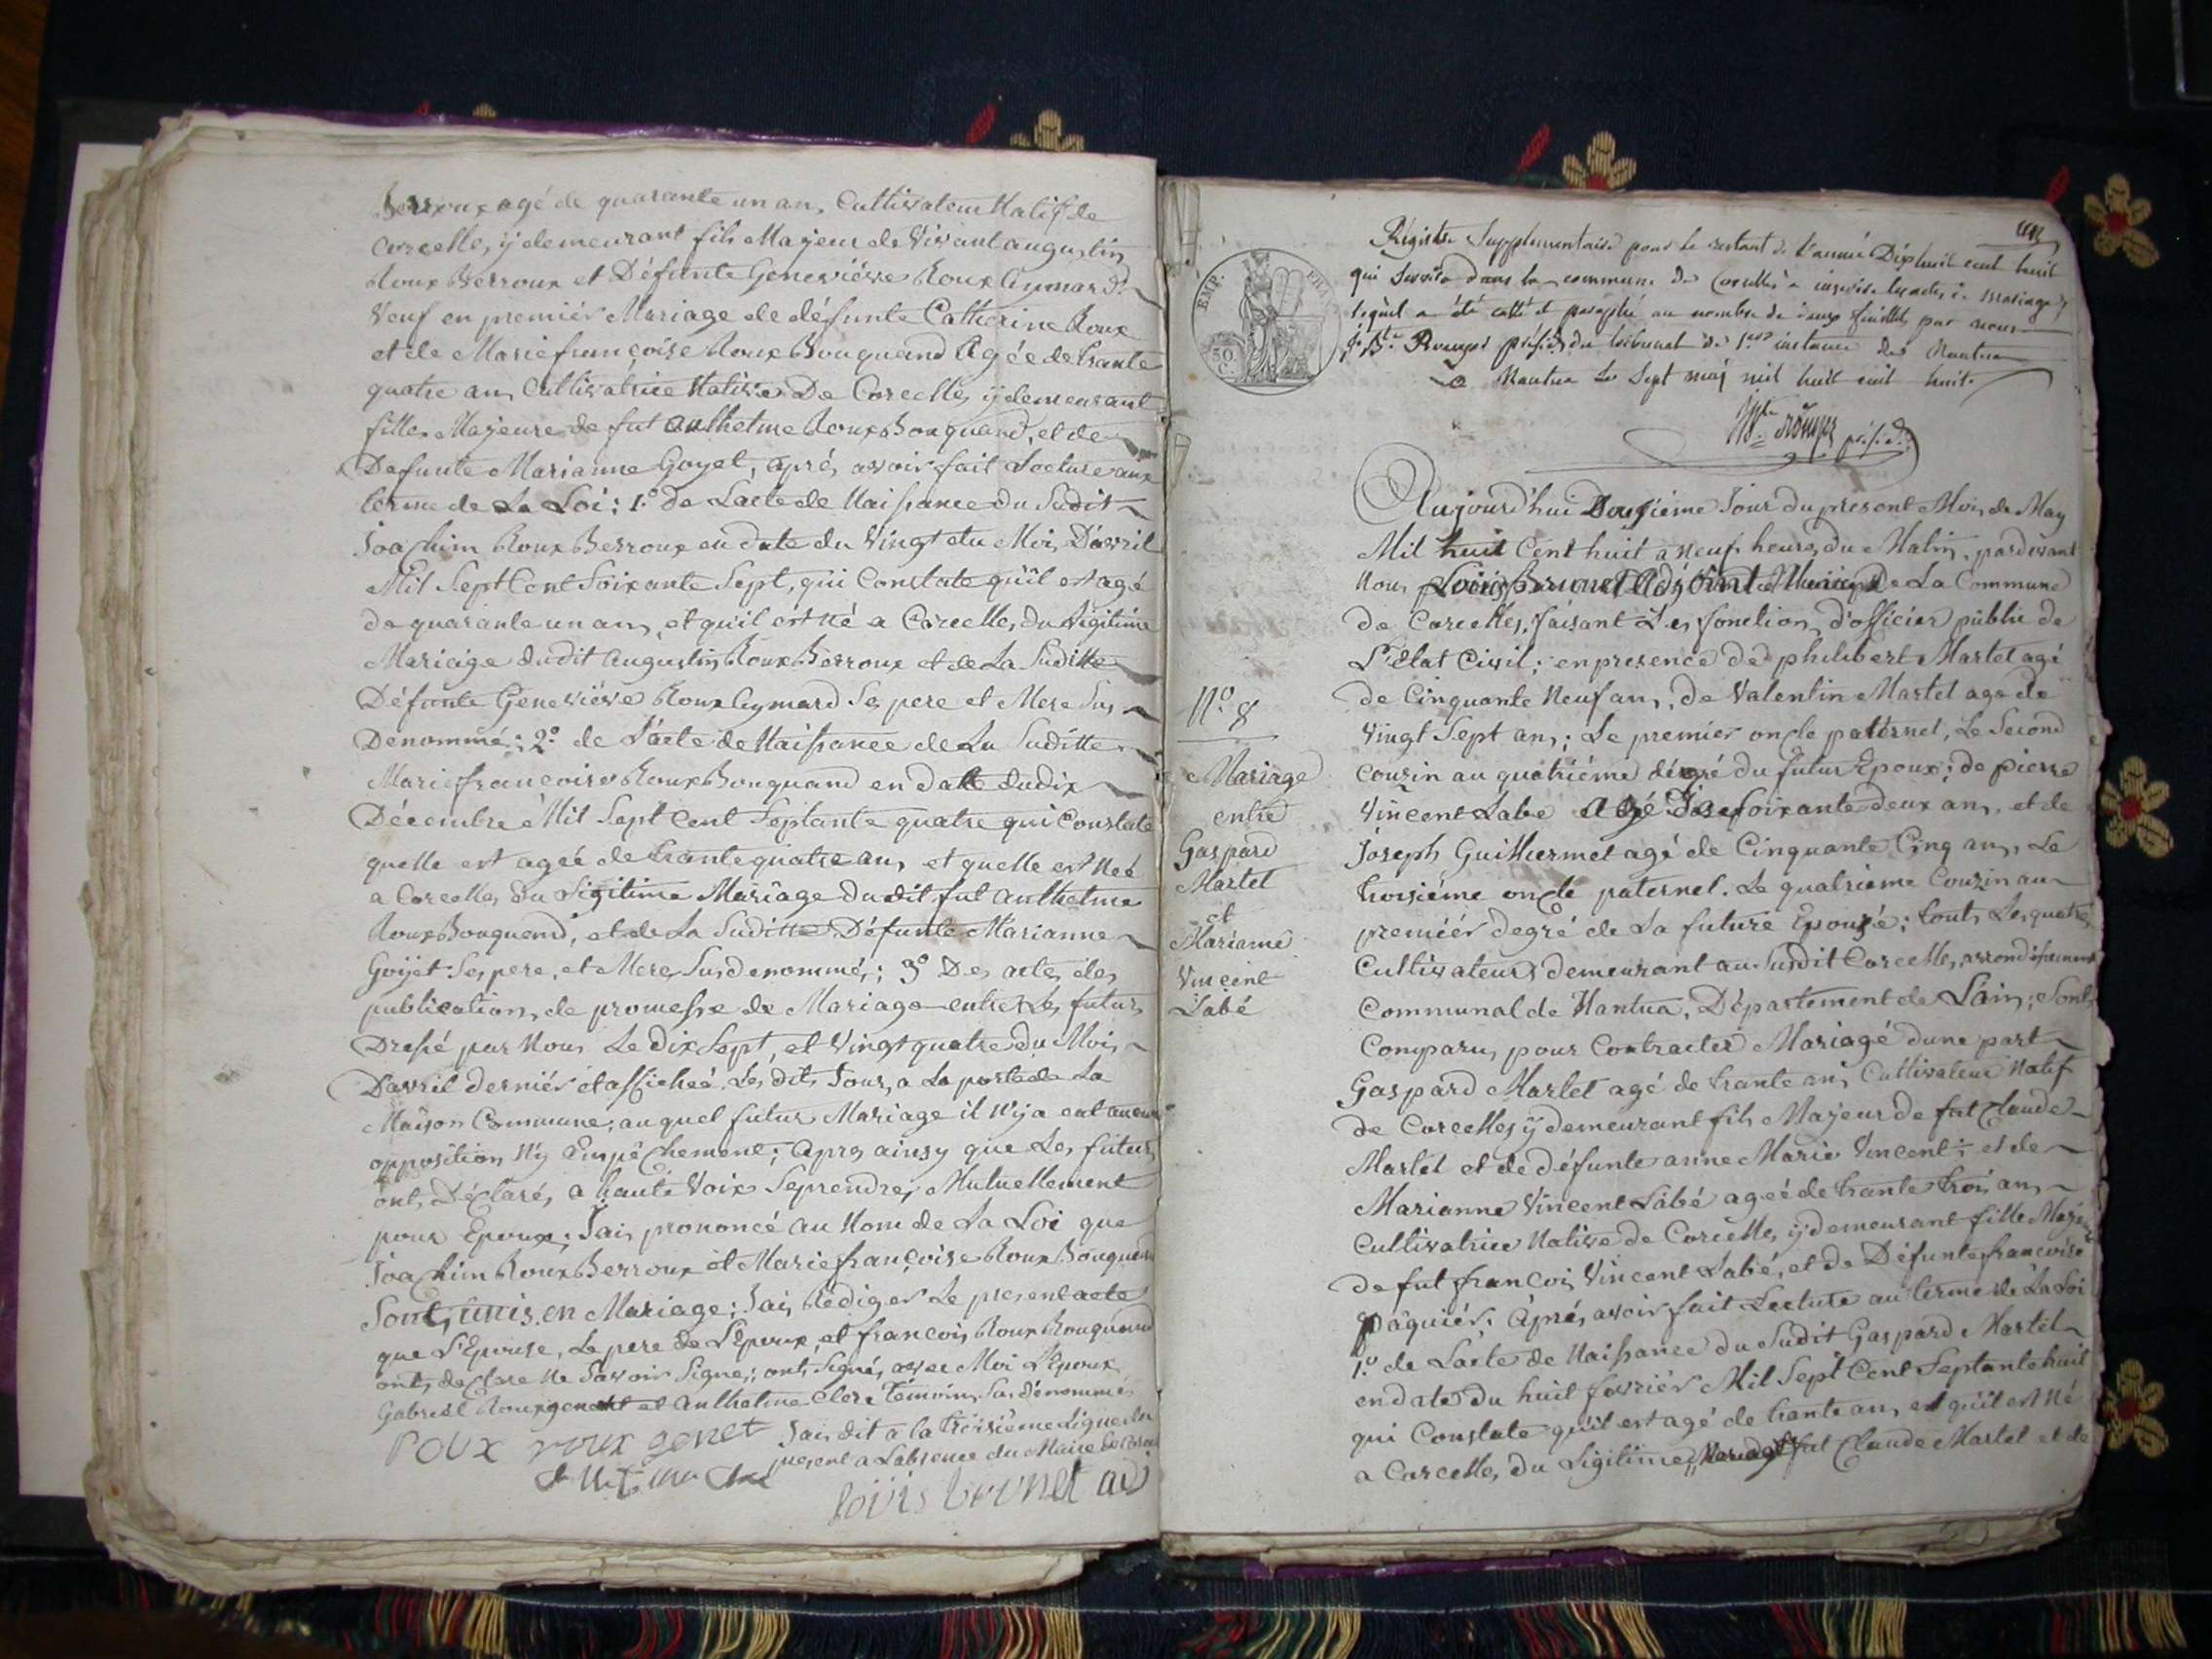 Berroux agé de quarante un ans, Cultivateur Natif de
Corcelle, ÿ demeurant fils Majeur de Vivant augustin
Roux Berroux et Défunte Geneviéve Roux Aymard
Veuf en premiér Mariage de défunte Catherine Roux
et de Marie françoise Roux Bouquand Agée de trante
quatre ans Cultivatrice Native De Corcelle, ÿ demeurant
fille Majeure de fut anthelme Roux Bouquand, et de
Defunte Marianne Goyet, aprés avoir fait Lecture aux
terme de La Loi: 1.º De Lacte de Naissance du Sudit
Joachim Roux Berroux en date du Vingt du Moi, D'avril
Mil Sept Cent Soixante Sept, qui Constate qu'il est agé
de quarante un ans, et qu'il est Né a Corcelle, du Légitime
Mariage dudit augustin Roux Berroux et de La Suditte
Défunte Geneviéve Roux Aymard Ses pere et Mere Sus
Dénommé; 2º de L'acte de Naissance de La Suditte
Marie françoise Roux Bouquand en date du dix
Décembre Mil Sept Cent Septante quatre qui Constate
quelle est agée de trante quatre ans et quelle est Neé
a Corcelle, du Légitime Mariage dudit fut anthelme
Roux Bouquand, et de La Suditte Défunte Marianne
Goÿet Ses pere, et Mere, Susdenommés; 3º Des actes des
publication, de promesse de Mariage entre Les futurs
Dressé par Nous Le Dix Sept, et Vingt quatre du Moi,
D'avril derniér et affichée Les dits Jour, a La porte de La
Maison Commune, auquel futur Mariage il N'y a eut aucune
opposition Ny Empêchement; apres ainsy que Les futurs
ont, Déclaré, a haute Voix Se prendre, Mutuellement
pour Epoux; Jai, prononcé au Nom de La Loi que
Joachim Roux Berroux et Marie françoise Roux Bouquand
Sont, unis, en Mariage; Jai, Rediger Le present acte
que L'Epouse, Le pere de L'Epoux, et francois Roux Bouquand
ont, declare Ne Savoir Signer; ont, Signé, avec Moi L'Epoux
Gabriel Roux genet et Anthelme Clerc Témoins Susdénommés
Roux roux genet Jai, dit a la troisiéme Ligne du
present a Labsence du Maire de
louis brunet ad
Régistre Supplémentaire pour le restant de l'année Dixhuit cent huit
qui servira dans la commune de Corcelles a inscrire les actes de mariage,
lequel a été cotté et paraphé au nombre de deux feuillets par nous
président du tribunal de 1.ere instance de Nantua
a Nantua le sept maj mil huit cent huit.
présid.
EMP. FRAN.
50. C.
Aujourd'hui Douzième Jour du present Moi, de May
Mil huit Cent huit a Neuf heure, du Matin, pardevant
Nous Louis Brunet Adjoint Municipal de La Commune
de Corcelles, faisant Les fonction, d'officier public de
L'état Civil; en presence de philibert Martel agé
de Cinquante Neuf ans, de Valentin Martel agé de
Vingt Sept ans; Le premier oncle paternel, Le Second
Couzin au quatriéme dégré du futur Epoux; de pierre
Vincent Labe agé de Soixante deux ans, et de
Joseph Guillermet agé de Cinquante Cinq ans, Le
troisiéme oncle paternel. Le quatrieme Couzin au
premiér degré de La future Epouse; tout, Les quatre
Cultivateurs demeurant au Susdit Corcelle, arrondissement
Communal de Nantua, Département de Lain; Sont,
Comparu, pour Contracter Mariagé dune part
Gaspard Martel agé de trante ans Cultivateur Natif
de Corcelles ÿ demeurant fils Majeur de fut Claude
Martel et de défunte anne Marie Vincent; et de
Marianne Vincent Labé ageé de trante trois ans
Cultivatrice Native de Corcelle, ÿ demeurant fille Majeure
de fut francois Vincent Labé, et de Défunte francoise
paquiér. Aprés avoir fait Lecture au terme de La Loi
1.º de Lacte de Naissance du Sudit Gaspard Martel
en date du huit favriér Mil Sept Cent Septante huit
qui Constate qu'il est agé de trante ans, et qu'il est Né
a Corcelle, du Légitime Mariage fut Claude Martel et de
Nº. 8
Mariage
entre
Gaspard
Martel
et
Marianne
Vincent
Labé